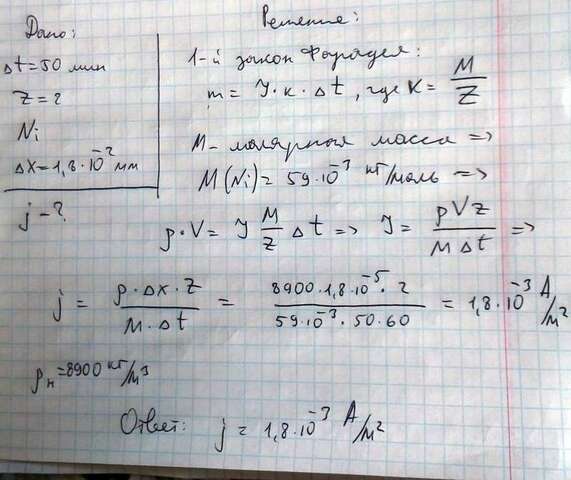 Дано:
Δt = 50 мин
Z = 2
Ni
Δx = 1,8·10⁻² мм
j - ?
Решение:
1-й закон Фарадея:
m = I·k·Δt, где K = M/Z
M - молярная масса =>
M(Ni) = 59·10⁻³ кг/моль =>
ρ·V = I M/z Δt => I = ρVz/MΔt =>
j = ρ·Δx·z/M·Δt = 8900·1,8·10⁻⁵·2/59·10⁻³·50·60 = 1,8·10⁻³ A/м²
ρн = 8900 кг/м³
Ответ: j = 1,8·10⁻³ A/м²